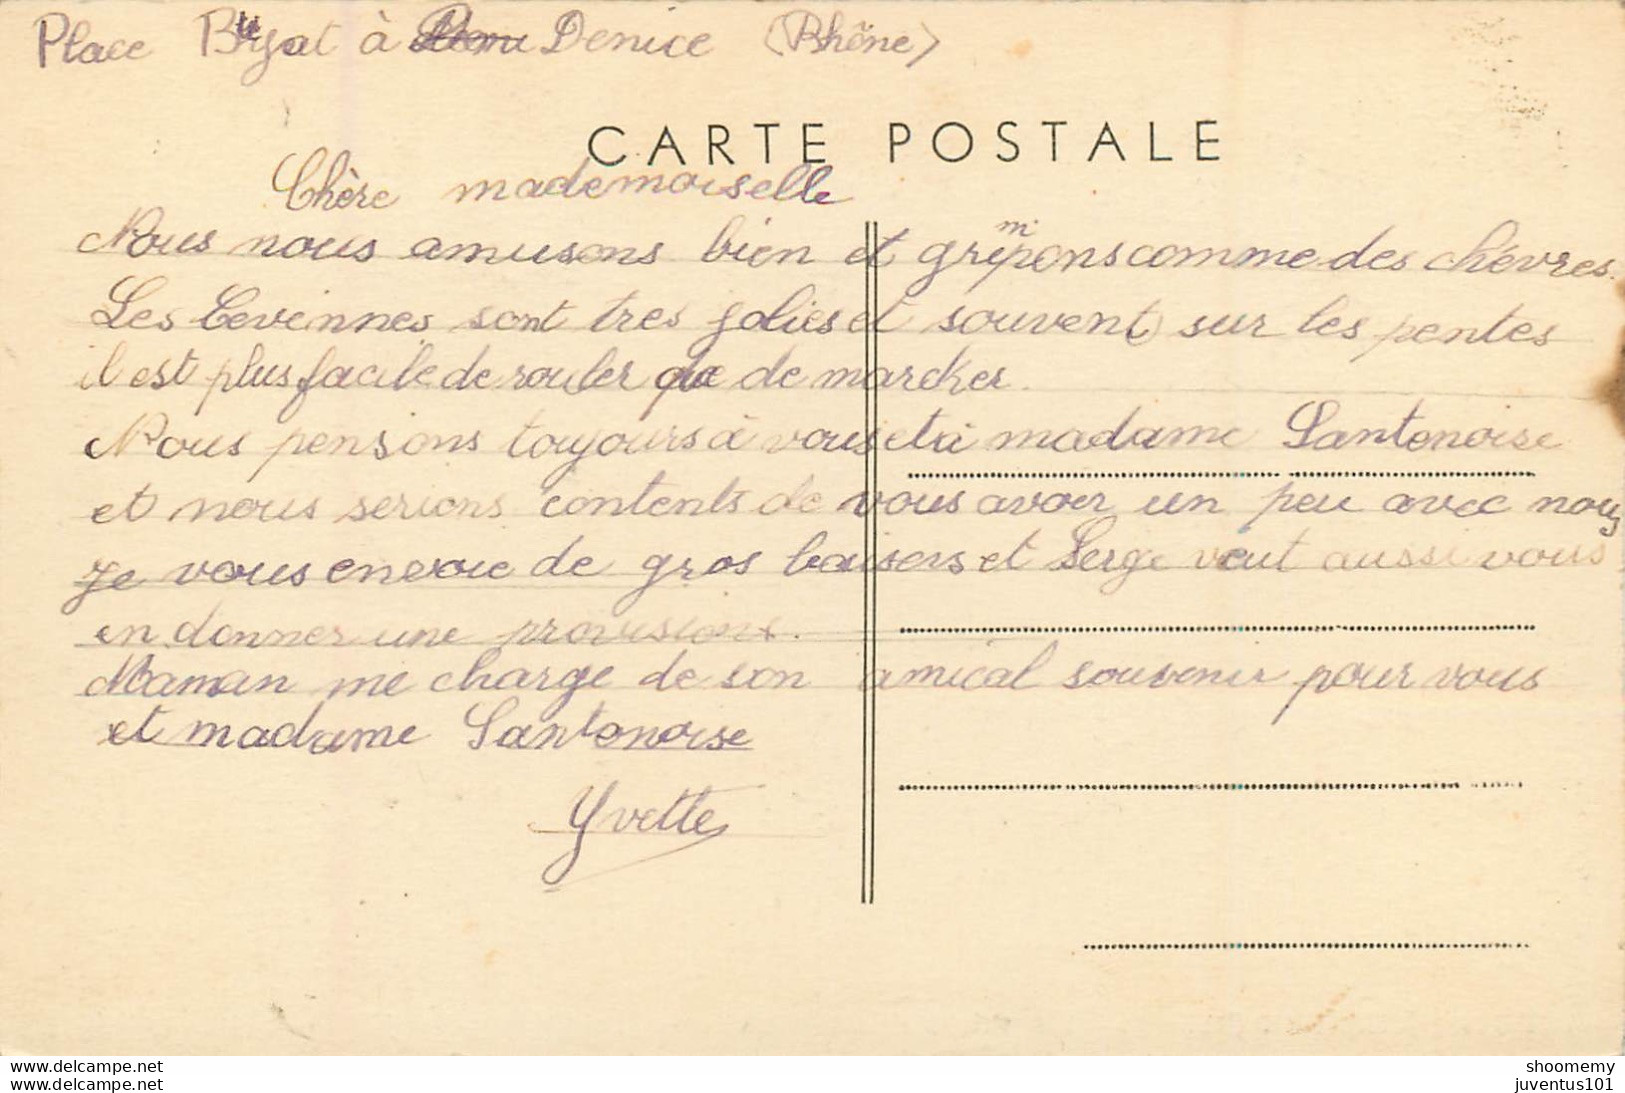 Place à Denice (Rhône)
CARTE POSTALE
Chère mademoiselle
Nous nous amusons bien et grimpons comme des chévres.
Les Cevennes sont tres jolies et souvent sur les pentes
il est plus facile de rouler que de marcher.
Nous pensons toujours à vous et à madame Santonoise
et nous serions contents de vous avoir un peu avec nous
Je vous envoie de gros baisers et Serge veut aussi vous
en donner une provisions.
Maman me charge de son amical souvenir pour vous
et madame Santonoise
Yvette
shoomemy
juventus101